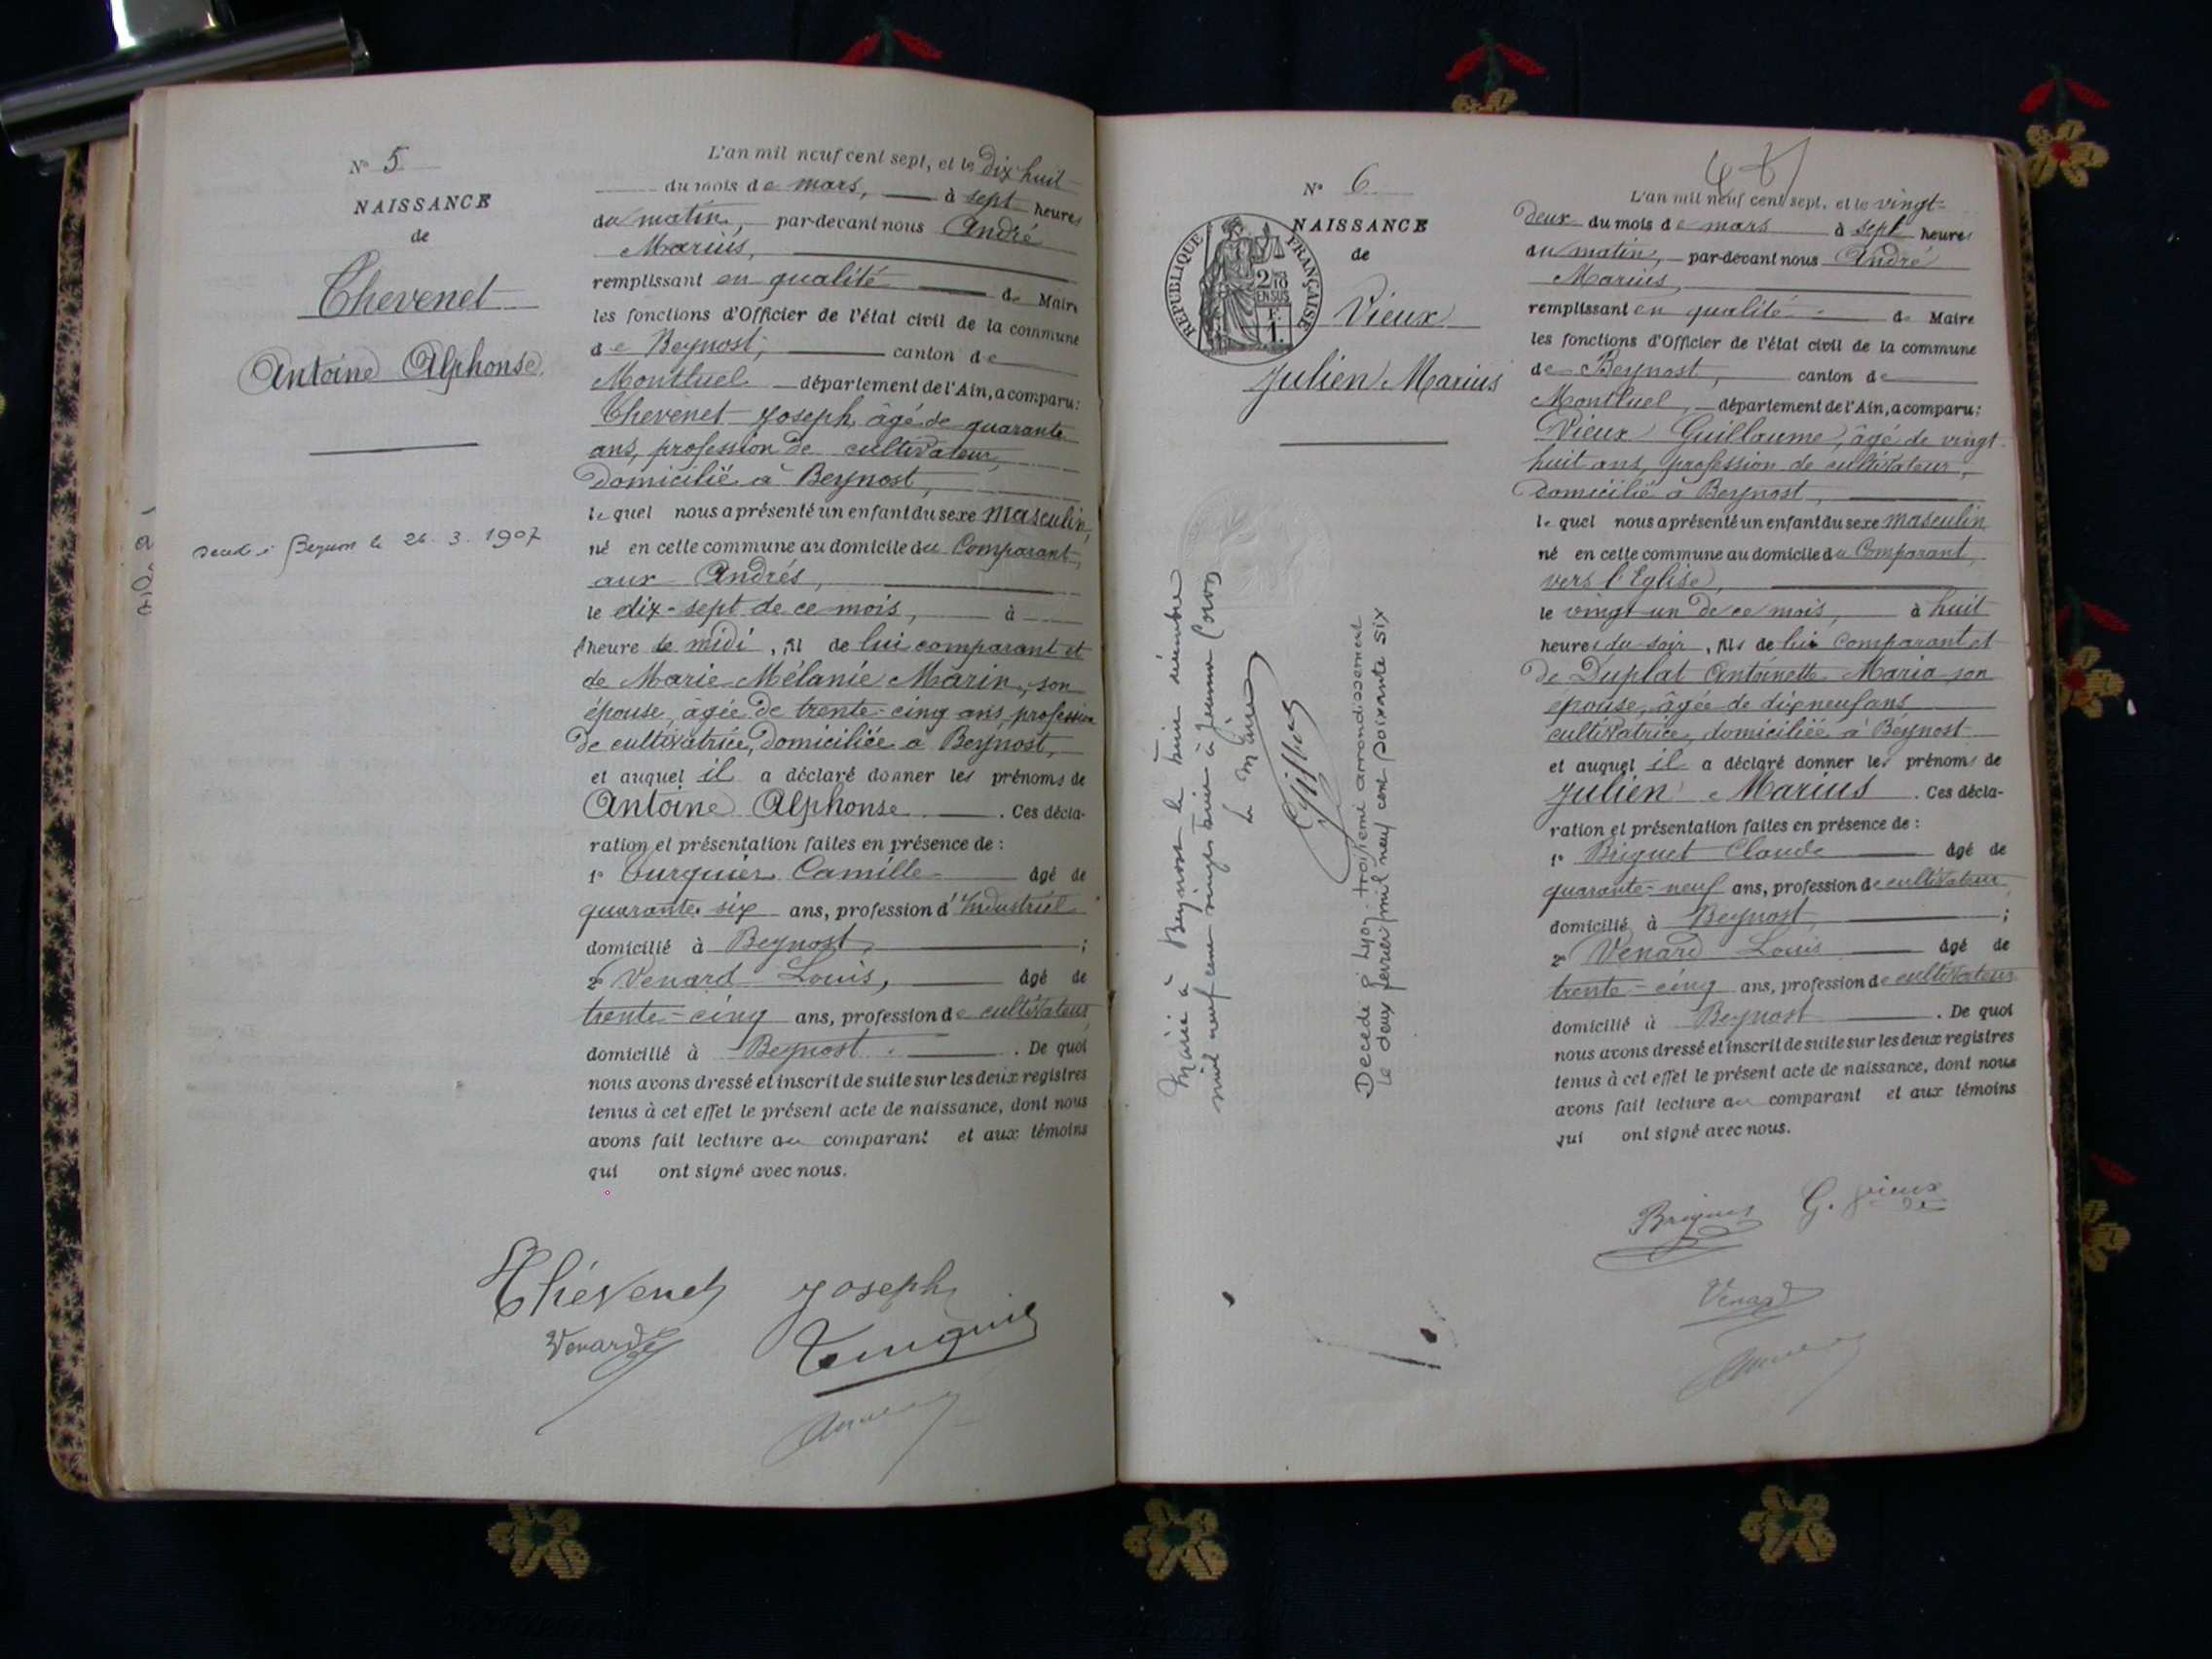 N° 5
NAISSANCE
de
Chevenet
Antoine Alphonse.
Beynost le 26. 3. 1907
L'an mil neuf cent sept, et le dix huit
du mois de mars, à sept heures
du matin, par-devant nous André
Marius,
remplissant en qualité de Maire
les fonctions d'Officier de l'état civil de la commune
de Beynost, canton de
Montluel département de l'Ain, a comparu:
Chevenet Joseph, âgé de quarante
ans, profession de cultivateur,
domicilié à Beynost,
lequel nous a présenté un enfant du sexe masculin,
né en cette commune au domicile du Comparant,
aux Andrés,
le dix-sept de ce mois, à
heure de midi, fil de lui comparant et
de Marie Mélanie Marin, son
épouse, âgée de trente-cinq ans, profession
de cultivatrice, domiciliée à Beynost,
et auquel il a déclaré donner les prénoms de
Antoine Alphonse. Ces décla-
ration et présentation faites en présence de :
1° Turquier Camille âgé de
quarante six ans, profession d'Industriel
domicilié à Beynost, ;
2° Venard Louis, âgé de
trente-cinq ans, profession de cultivateur
domicilié à Beynost. De quoi
nous avons dressé et inscrit de suite sur les deux registres
tenus à cet effet le présent acte de naissance, dont nous
avons fait lecture au comparant et aux témoins
qui ont signé avec nous.
Chévenet Joseph
Venard
N° 6
NAISSANCE
de
RÉPUBLIQUE FRANÇAISE
2/10
EN SUS
F.
1.
Vieux
Julien Marius
Marié à Beynost le huit décembre
mil neuf cent
Le Maire
Décédé à Lyon troisième arrondissement
le deux février mil neuf cent soixante six
L'an mil neuf cent sept, et le vingt-
deux du mois de mars à sept heures
du matin, par-devant nous André
Marius,
remplissant en qualité de Maire
les fonctions d'Officier de l'état civil de la commune
de Beynost, canton de
Montluel, département de l'Ain, a comparu:
Vieux Guillaume, âgé de vingt
huit ans, profession de cultivateur,
domicilié à Beynost,
lequel nous a présenté un enfant du sexe masculin
né en cette commune au domicile du Comparant,
vers l'Eglise,
le vingt un de ce mois, à huit
heures du soir, fils de lui comparant et
de Duplat Antoinette Maria son
épouse, âgée de dix neuf ans
cultivatrice, domiciliée à Beynost
et auquel il a déclaré donner les prénoms de
Julien Marius. Ces décla-
ration et présentation faites en présence de :
1° Briguet Claude âgé de
quarante-neuf ans, profession de cultivateur
domicilié à Beynost ;
2° Venard Louis âgé de
trente-cinq ans, profession de cultivateur
domicilié à Beynost. De quoi
nous avons dressé et inscrit de suite sur les deux registres
tenus à cet effet le présent acte de naissance, dont nous
avons fait lecture au comparant et aux témoins
qui ont signé avec nous.
Briguet G. Vieux
Venard